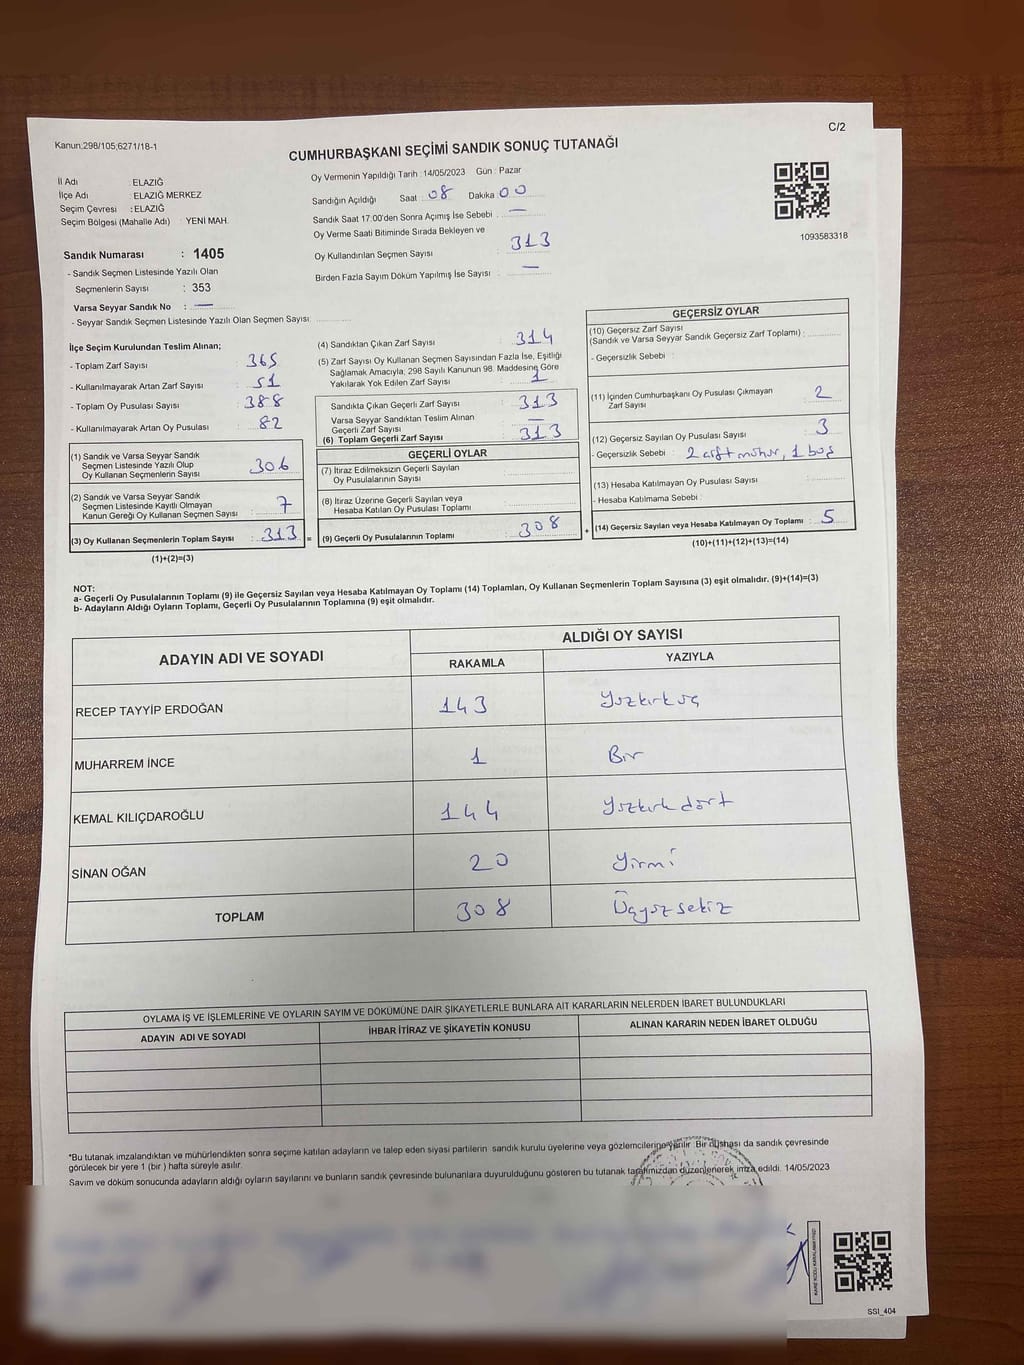 Kanun:298/105;6271/18-1
C/2
CUMHURBAŞKANI SEÇİMİ SANDIK SONUÇ TUTANAĞI
İl Adı : ELAZIĞ
İlçe Adı : ELAZIĞ MERKEZ
Seçim Çevresi : ELAZIĞ
Seçim Bölgesi (Mahalle Adı) : YENİ MAH.
Sandık Numarası : 1405
- Sandık Seçmen Listesinde Yazılı Olan
Seçmenlerin Sayısı : 353
Varsa Seyyar Sandık No : —
- Seyyar Sandık Seçmen Listesinde Yazılı Olan Seçmen Sayısı:
Oy Vermenin Yapıldığı Tarih : 14/05/2023 Gün : Pazar
Sandığın Açıldığı Saat 08 Dakika 00
Sandık Saat 17:00'den Sonra Açımış İse Sebebi : —
Oy Verme Saati Bitiminde Sırada Bekleyen ve
Oy Kullandırılan Seçmen Sayısı : 313
Birden Fazla Sayım Döküm Yapılmış İse Sayısı : —
1093583318
İlçe Seçim Kurulundan Teslim Alınan;
- Toplam Zarf Sayısı : 365
- Kullanılmayarak Artan Zarf Sayısı : 51
- Toplam Oy Pusulası Sayısı : 388
- Kullanılmayarak Artan Oy Pusulası : 82
(1) Sandık ve Varsa Seyyar Sandık
Seçmen Listesinde Yazılı Olup
Oy Kullanan Seçmenlerin Sayısı : 306
(2) Sandık ve Varsa Seyyar Sandık
Seçmen Listesinde Kayıtlı Olmayan
Kanun Gereği Oy Kullanan Seçmen Sayısı : 7
(3) Oy Kullanan Seçmenlerin Toplam Sayısı : 313 =
(1)+(2)=(3)
(4) Sandıktan Çıkan Zarf Sayısı : 314
(5) Zarf Sayısı Oy Kullanan Seçmen Sayısından Fazla İse, Eşitliği
Sağlamak Amacıyla, 298 Sayılı Kanunun 98. Maddesine Göre
Yakılarak Yok Edilen Zarf Sayısı : 1
Sandıkta Çıkan Geçerli Zarf Sayısı : 313
Varsa Seyyar Sandıktan Teslim Alınan
Geçerli Zarf Sayısı : —
(6) Toplam Geçerli Zarf Sayısı : 313
GEÇERLİ OYLAR
(7) İtiraz Edilmeksizin Geçerli Sayılan
Oy Pusulalarının Sayısı :
(8) İtiraz Üzerine Geçerli Sayılan veya
Hesaba Katılan Oy Pusulası Toplamı :
(9) Geçerli Oy Pusulalarının Toplamı : 308 +
GEÇERSİZ OYLAR
(10) Geçersiz Zarf Sayısı
(Sandık ve Varsa Seyyar Sandık Geçersiz Zarf Toplamı) :
- Geçersizlik Sebebi :
(11) İçinden Cumhurbaşkanı Oy Pusulası Çıkmayan
Zarf Sayısı : 2
(12) Geçersiz Sayılan Oy Pusulası Sayısı : 3
- Geçersizlik Sebebi : 2 çift mühür, 1 boş
(13) Hesaba Katılmayan Oy Pusulası Sayısı :
- Hesaba Katılmama Sebebi :
(14) Geçersiz Sayılan veya Hesaba Katılmayan Oy Toplamı : 5
(10)+(11)+(12)+(13)=(14)
NOT:
a- Geçerli Oy Pusulalarının Toplamı (9) ile Geçersiz Sayılan veya Hesaba Katılmayan Oy Toplamı (14) Toplamları, Oy Kullanan Seçmenlerin Toplam Sayısına (3) eşit olmalıdır. (9)+(14)=(3)
b- Adayların Aldığı Oyların Toplamı, Geçerli Oy Pusulalarının Toplamına (9) eşit olmalıdır.
ADAYIN ADI VE SOYADI
ALDIĞI OY SAYISI
RAKAMLA YAZIYLA
RECEP TAYYİP ERDOĞAN 143 Yüzkırküç
MUHARREM İNCE 1 Bir
KEMAL KILIÇDAROĞLU 144 Yüzkırkdört
SİNAN OĞAN 20 Yirmi
TOPLAM 308 Üçyüzsekiz
OYLAMA İŞ VE İŞLEMLERİNE VE OYLARIN SAYIM VE DÖKÜMÜNE DAİR ŞİKAYETLERLE BUNLARA AİT KARARLARIN NELERDEN İBARET BULUNDUKLARI
ADAYIN ADI VE SOYADI İHBAR İTİRAZ VE ŞİKAYETİN KONUSU ALINAN KARARIN NEDEN İBARET OLDUĞU
*Bu tutanak imzalandıktan ve mühürlendikten sonra seçime katılan adayların ve talep eden siyasi partilerin sandık kurulu üyelerine veya gözlemcilerine verilir. Bir nüshası da sandık çevresinde
görülecek bir yere 1 (bir ) hafta süreyle asılır.
Sayım ve döküm sonucunda adayların aldığı oyların sayılarını ve bunların sandık çevresinde bulunanlara duyurulduğunu gösteren bu tutanak tarafımızdan düzenlenerek imza edildi. 14/05/2023
SSI_404